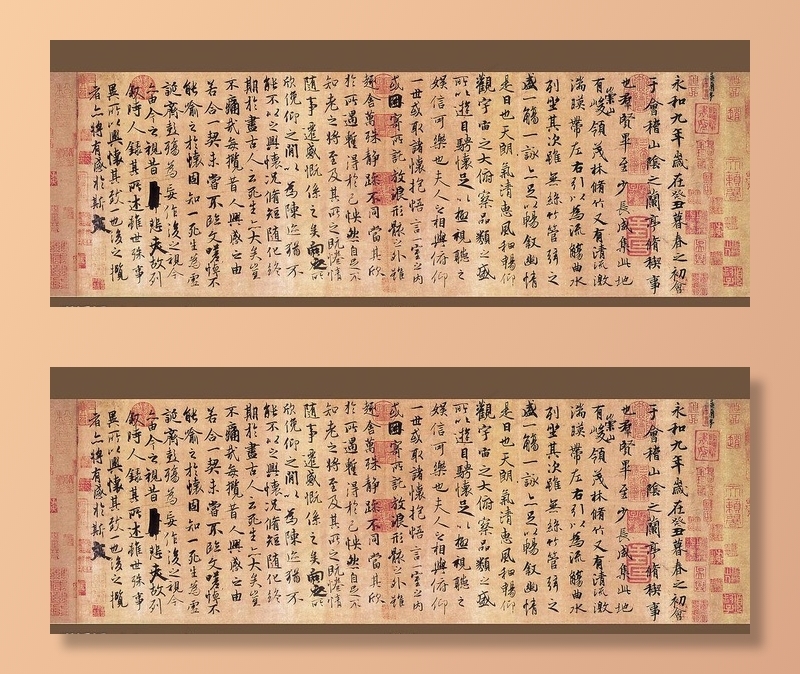 永和九年歲在癸丑暮春之初會
于會稽山陰之蘭亭脩稧事
也羣賢畢至少長咸集此地
有崇山峻領茂林脩竹又有清流激
湍暎帶左右引以為流觴曲水
列坐其次雖無絲竹管弦之
盛一觴一詠亦足以暢敘幽情
是日也天朗氣清惠風和暢仰
觀宇宙之大俯察品類之盛
所以遊目騁懷足以極視聽之
娛信可樂也夫人之相與俯仰
一世或取諸懷抱悟言一室之內
或因寄所託放浪形骸之外雖
趣舍萬殊靜躁不同當其欣
於所遇蹔得於己怏然自足不
知老之將至及其所之既惓情
隨事遷感慨係之矣向之所
欣俛仰之間以為陳迹猶不
能不以之興懷況脩短隨化終
期於盡古人云死生亦大矣豈
不痛哉每攬昔人興感之由
若合一契未嘗不臨文嗟悼不
能喻之於懷固知一死生為虛
誕齊彭殤為妄作後之視今
亦由今之視昔悲夫故列
敘時人錄其所述雖世殊事
異所以興懷其致一也後之攬
者亦將有感於斯文
永和九年歲在癸丑暮春之初會
于會稽山陰之蘭亭脩稧事
也羣賢畢至少長咸集此地
有崇山峻領茂林脩竹又有清流激
湍暎帶左右引以為流觴曲水
列坐其次雖無絲竹管弦之
盛一觴一詠亦足以暢敘幽情
是日也天朗氣清惠風和暢仰
觀宇宙之大俯察品類之盛
所以遊目騁懷足以極視聽之
娛信可樂也夫人之相與俯仰
一世或取諸懷抱悟言一室之內
或因寄所託放浪形骸之外雖
趣舍萬殊靜躁不同當其欣
於所遇蹔得於己怏然自足不
知老之將至及其所之既惓情
隨事遷感慨係之矣向之所
欣俛仰之間以為陳迹猶不
能不以之興懷況脩短隨化終
期於盡古人云死生亦大矣豈
不痛哉每攬昔人興感之由
若合一契未嘗不臨文嗟悼不
能喻之於懷固知一死生為虛
誕齊彭殤為妄作後之視今
亦由今之視昔悲夫故列
敘時人錄其所述雖世殊事
異所以興懷其致一也後之攬
者亦將有感於斯文